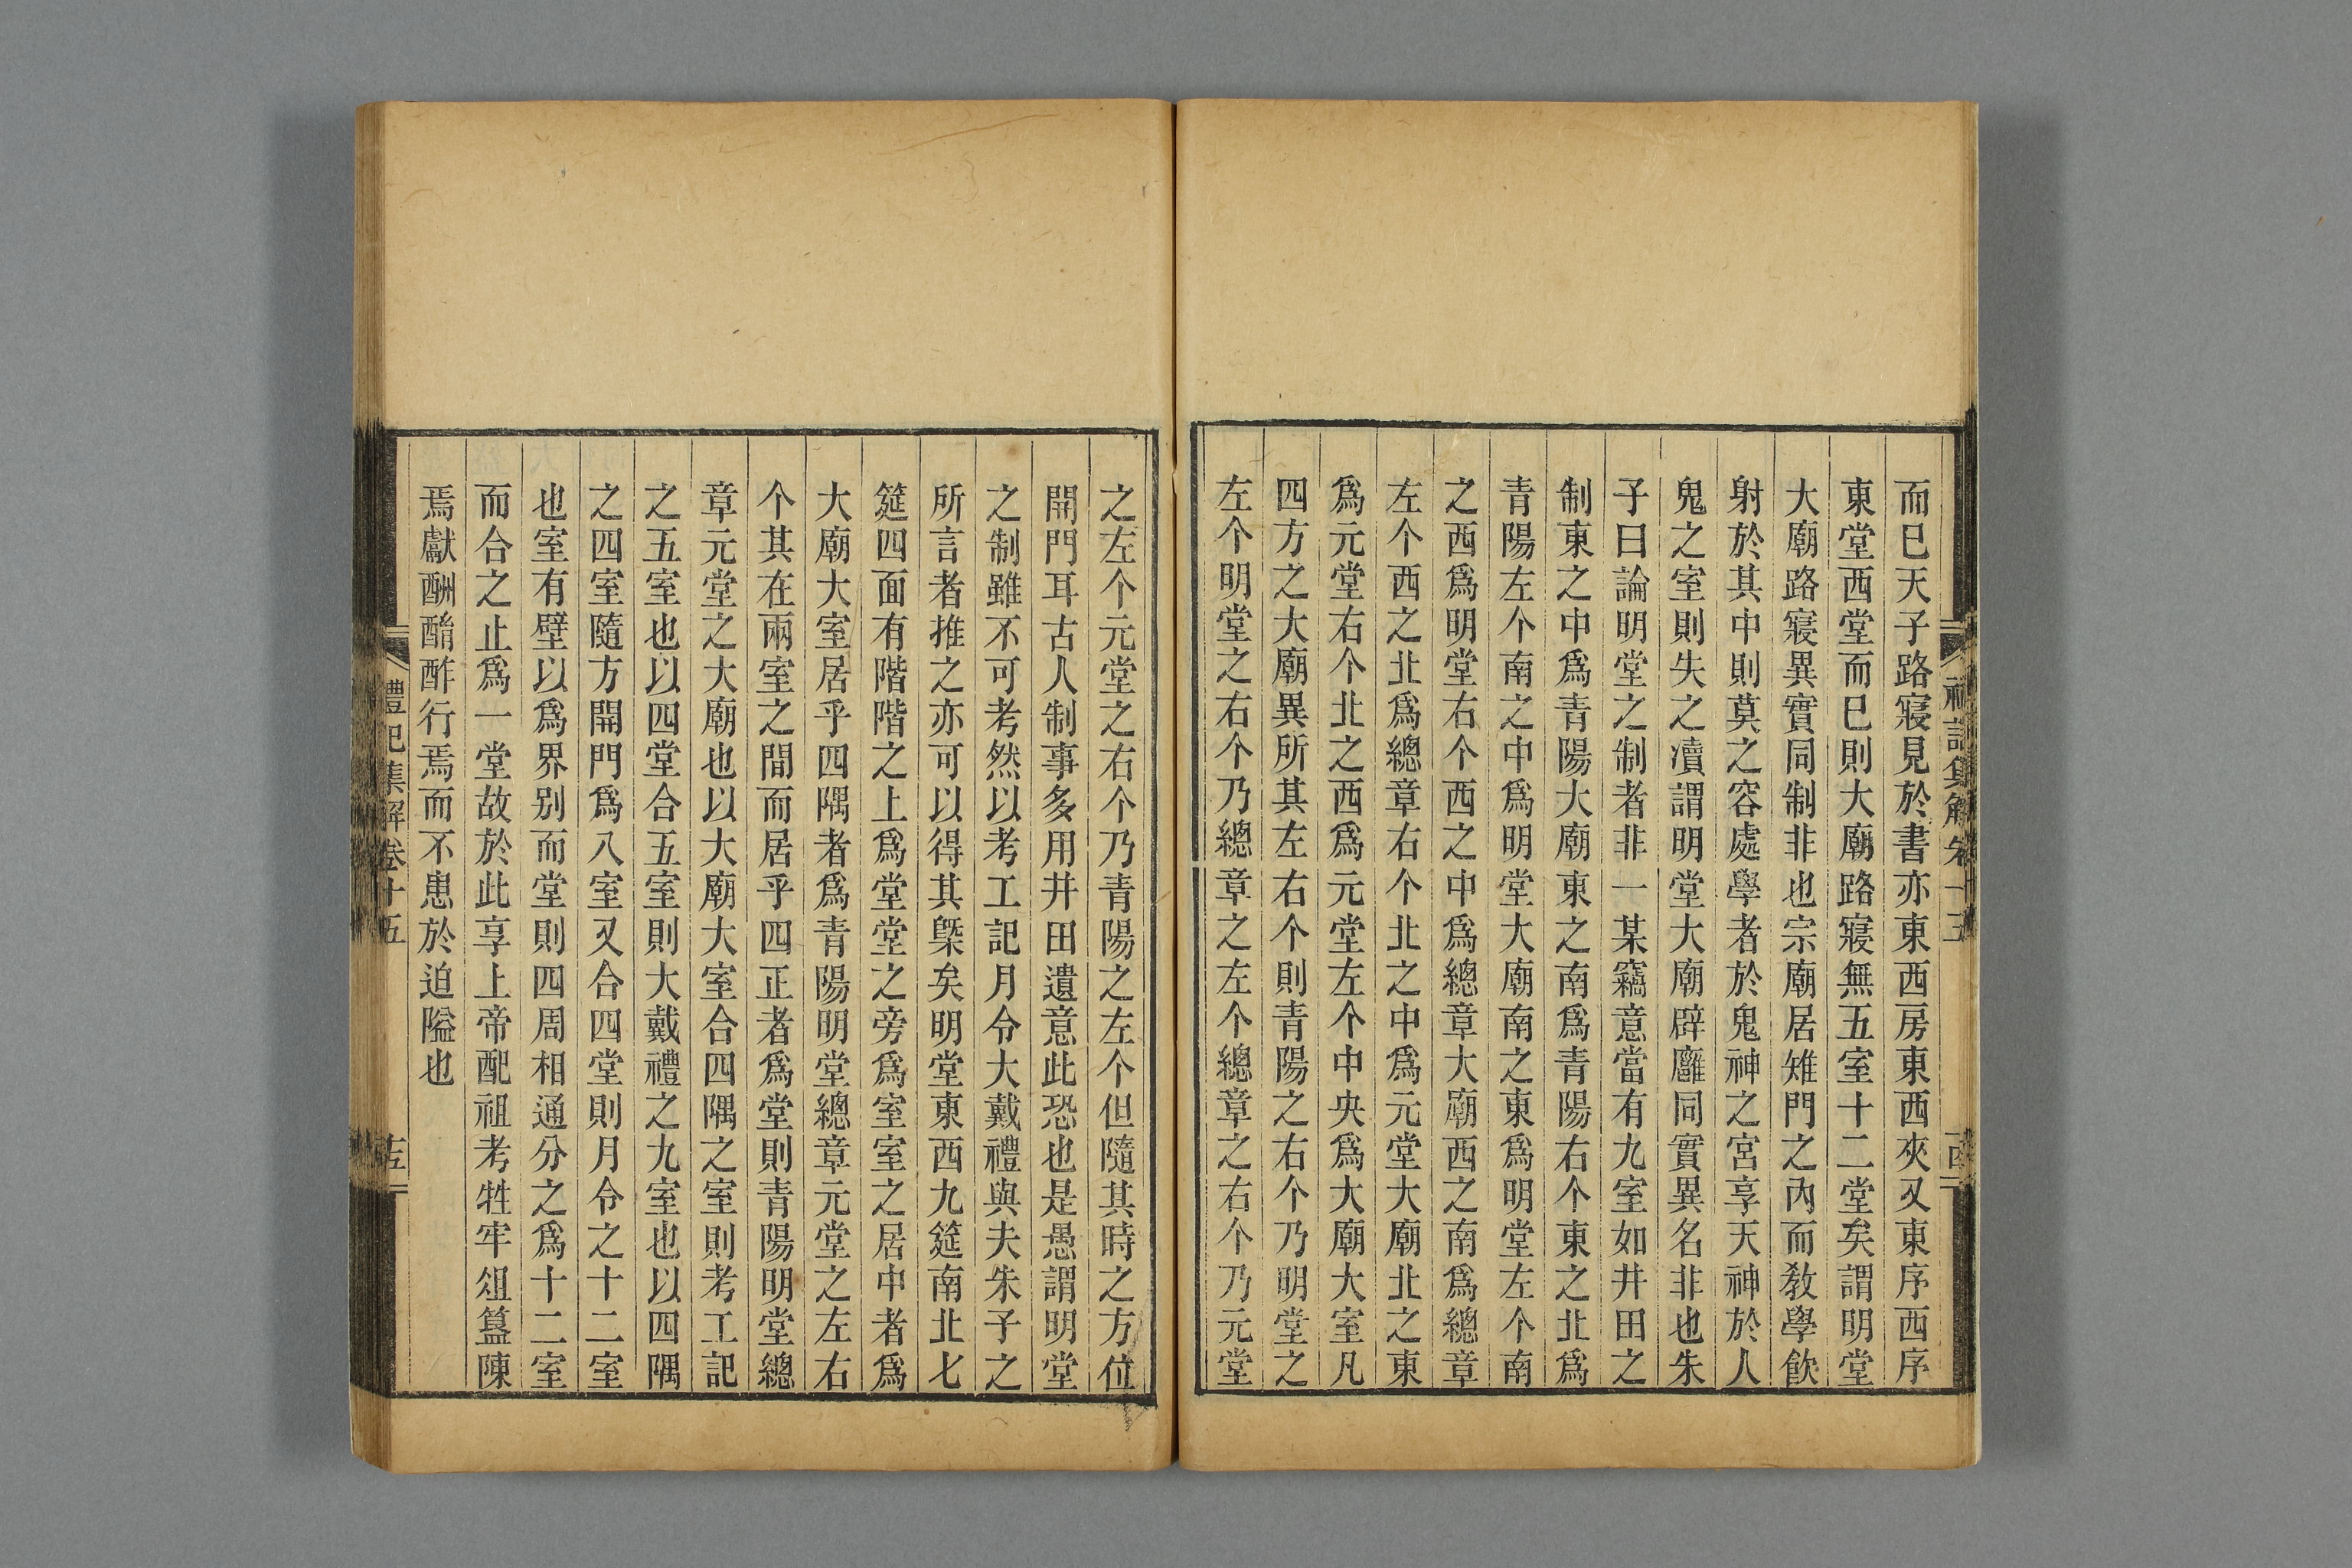 而已天子路寢見於書亦東西房東西夾又東序西序
東堂西堂而已則大廟路寢無五室十二堂矣謂明堂
大廟路寢異實同制非也宗廟居雉門之內而教學飲
射於其中則莫之容處學者於鬼神之宮享天神於人
鬼之室則失之凟謂明堂大廟辟廱同實異名非也朱
子曰論明堂之制者非一某竊意當有九室如井田之
制東之中爲青陽大廟東之南爲青陽右个東之北爲
青陽左个南之中爲明堂大廟南之東爲明堂左个南
之西爲明堂右个西之中爲總章大廟西之南爲總章
左个西之北爲總章右个北之中爲元堂大廟北之東
爲元堂右个北之西爲元堂左个中央爲大廟大室凡
四方之大廟異所其左右个則青陽之右个乃明堂之
左个明堂之右个乃總章之左个總章之右个乃元堂
之左个元堂之右个乃青陽之左个但隨其時之方位
開門耳古人制事多用井田遺意此恐也是愚謂明堂
之制雖不可考然以考工記月令大戴禮與夫朱子之
所言者推之亦可以得其槩矣明堂東西九筵南北七
筵四面有階階之上爲堂堂之旁爲室室之居中者爲
大廟大室居乎四隅者爲青陽明堂總章元堂之左右
个其在兩室之間而居乎四正者爲堂則青陽明堂總
章元堂之大廟也以大廟大室合四隅之室則考工記
之五室也以四堂合五室則大戴禮之九室也以四隅
之四室隨方開門爲八室又合四堂則月令之十二室
也室有壁以爲界别而堂則四周相通分之爲十二室
而合之止爲一堂故於此享上帝配祖考牲牢俎簋陳
焉獻酬酳酢行焉而不患於迫隘也
禮記集解卷十五